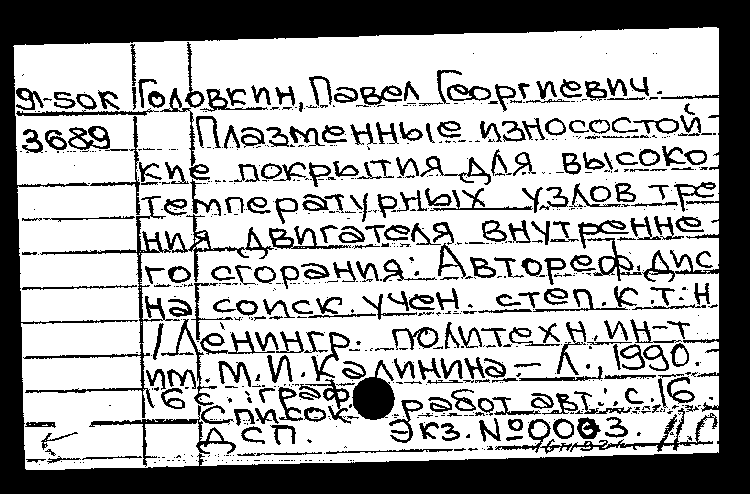 91-50К Головкин, Павел Георгиевич.
3689 Плазменные износостой-
кие покрытия для высоко-
температурных узлов тре-
ния двигателя внутренне-
го сгорания: Автореф. дис.
на соиск. учен. степ. к.т.н
/ Ленингр. политехн. ин-т
им. М.И. Калинина.- Л., 1990.-
16 с.: граф.
Список работ авт.: с.16.
ДСП. Экз. №0003.